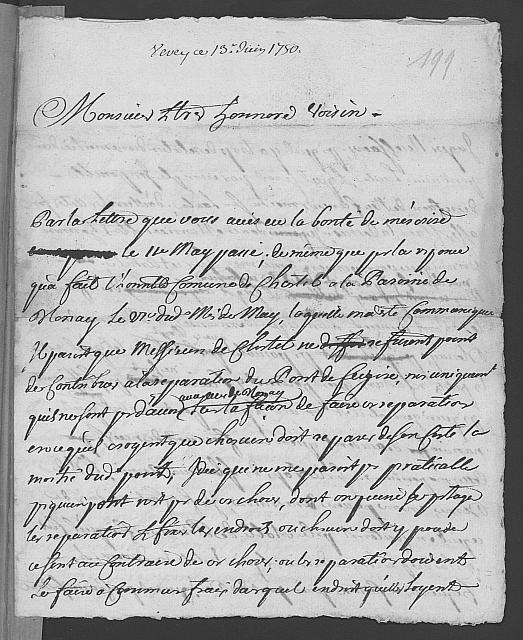 Vevey ce 13e Juin 1750.
199
Monsieur tres honnoré Voisin
Par la lettre que vous avés eu la bonté de m'écrire
le 11e May passé, de même que par la réponce
qu'a fait l'honble Comune de Chastel a la Paroisse de
Blonay le du dt Mois de May, laquelle m'a été Communiquée
Il paroit que Messieurs de Chastel ne refusent point
de Contribuer a la reparation du Pont de Feigire, mais uniquent
qu'ils ne sont pas d'accord avec ceux de Blonay sur la façon de faire ces reparations
en ce qu'ils croyent que chacun doit reparer de son Coté la
moitié du dt pont, Idée qui ne me paroit pas praticable
puis qu'un pont n'est pas de ces choses, dont on puisse partager
les reparations & fixer les endroits ou chacun doit y pourvoir
ce sont au Contraire de ces choses, ou les reparations doivent
se faire a Communs frais dans quel endroit qu'elles soyent